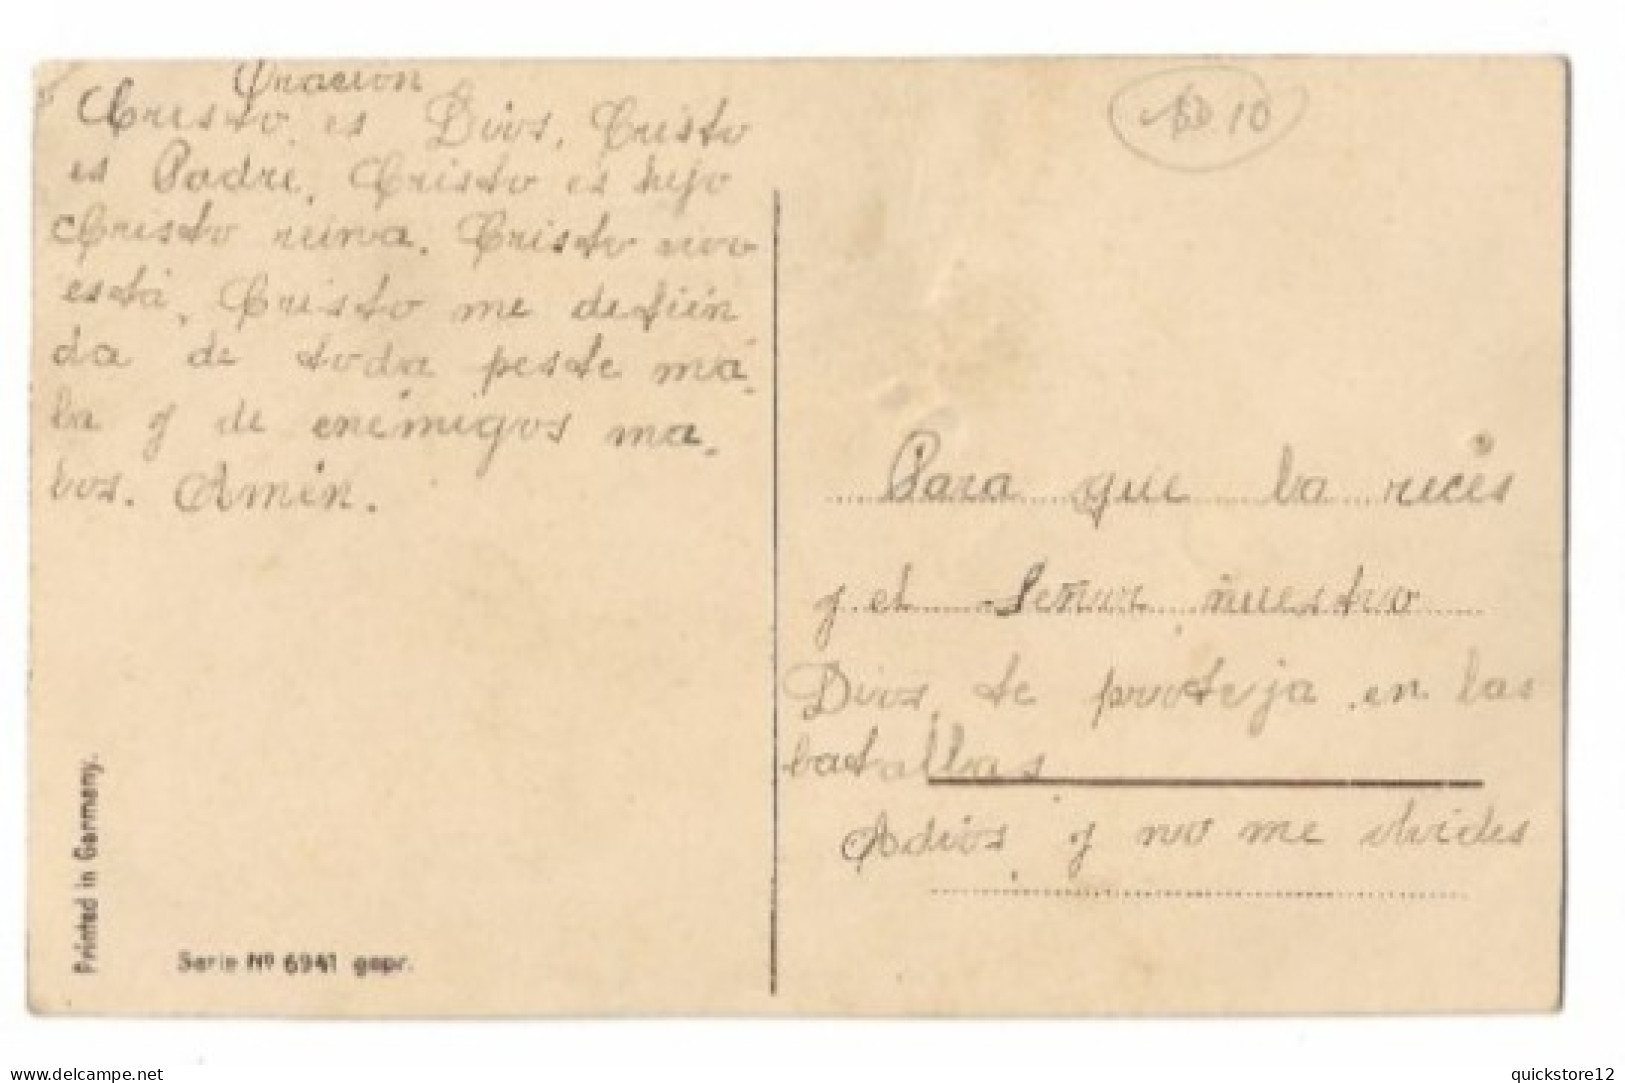 Oracion
Cristo es Dios, Cristo
es Padre, Cristo es hijo
Cristo reina. Cristo vivo
está. Cristo me defién
da de toda peste má-
la y de enemigos ma-
los. Amén.
$ 10
Para que la recés
y el Señor nuestro
Dios te proteja en las
batallas
Adios y no me olvides
Printed in Germany.
Serie Nº 6941 gepr.
delcampe.net
quickstore12